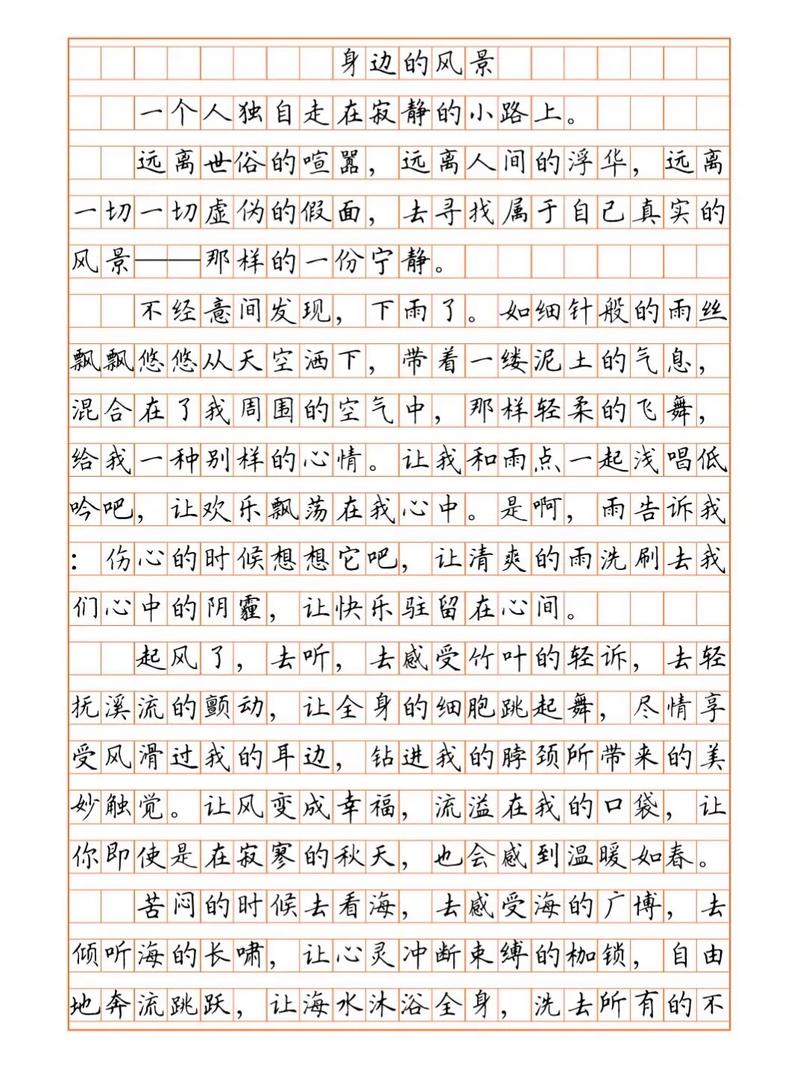 身边的风景
一个人独自走在寂静的小路上。
远离世俗的喧嚣，远离人间的浮华，远离
一切一切虚伪的假面，去寻找属于自己真实的
风景——那样的一份宁静。
不经意间发现，下雨了。如细针般的雨丝
飘飘悠悠从天空洒下，带着一缕泥土的气息，
混合在了我周围的空气中，那样轻柔的飞舞，
给我一种别样的心情。让我和雨点一起浅唱低
吟吧，让欢乐飘荡在我心中。是啊，雨告诉我
：伤心的时候想想它吧，让清爽的雨洗刷去我
们心中的阴霾，让快乐驻留在心间。
起风了，去听，去感受竹叶的轻诉，去轻
抚溪流的颤动，让全身的细胞跳起舞，尽情享
受风滑过我的耳边，钻进我的脖颈所带来的美
妙触觉。让风变成幸福，流溢在我的口袋，让
你即使是在寂寥的秋天，也会感到温暖如春。
苦闷的时候去看海，去感受海的广博，去
倾听海的长啸，让心灵冲断束缚的枷锁，自由
地奔流跳跃，让海水沐浴全身，洗去所有的不